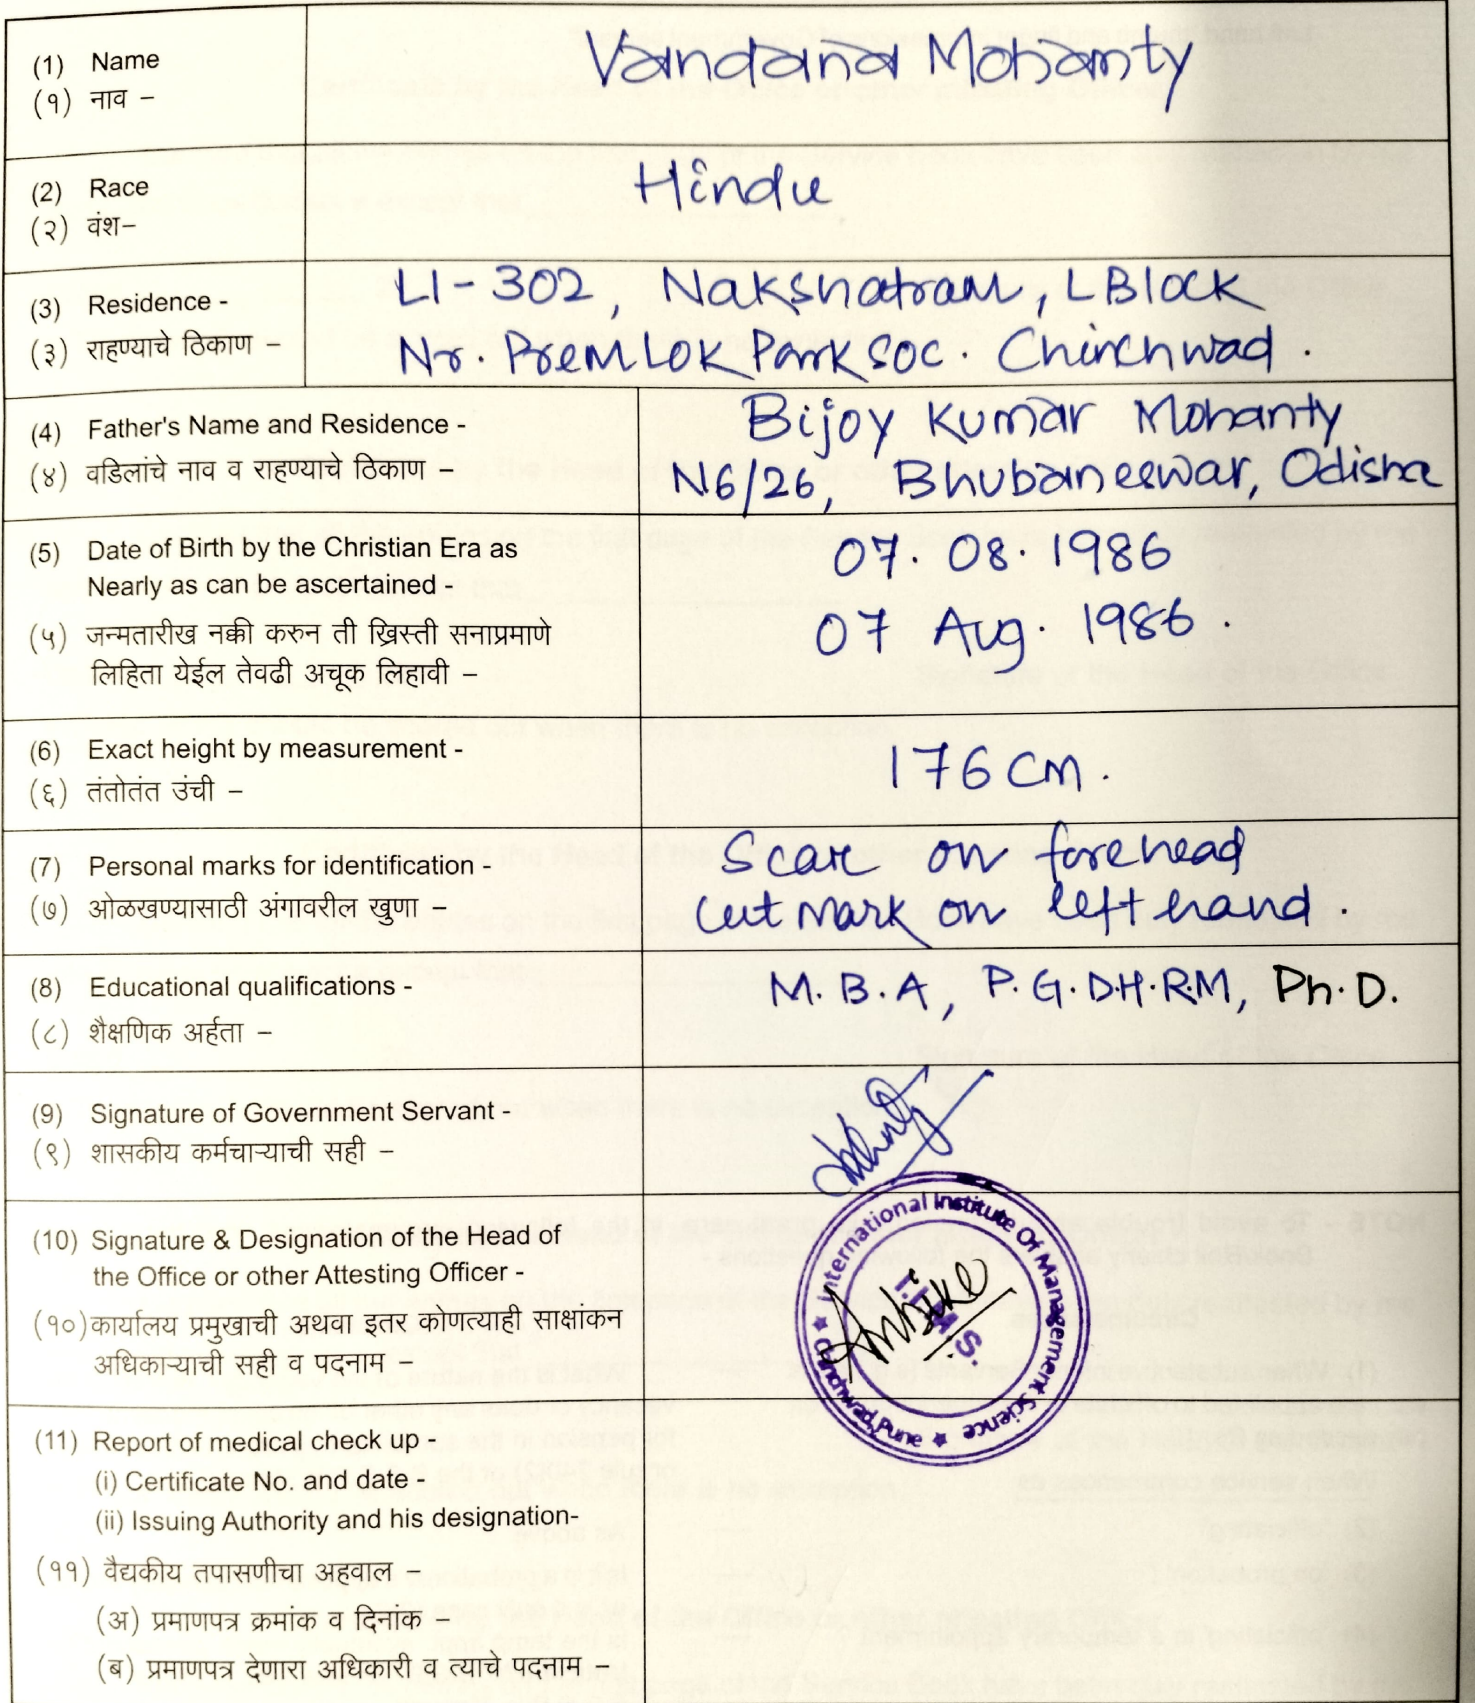 (1) Name
(१) नाव –
Vandana Mohanty
(2) Race
(२) वंश–
Hindu
(3) Residence -
(३) राहण्याचे ठिकाण –
L1-302, Nakshatram, L Block
Nr. Premlok Park Soc. Chinchwad.
(4) Father's Name and Residence -
(४) वडिलांचे नाव व राहण्याचे ठिकाण –
Bijoy Kumar Mohanty
N6/26, Bhubaneswar, Odisha
(5) Date of Birth by the Christian Era as
Nearly as can be ascertained -
(५) जन्मतारीख नक्की करुन ती ख्रिस्ती सनाप्रमाणे
लिहिता येईल तेवढी अचूक लिहावी –
07.08.1986
07 Aug. 1986.
(6) Exact height by measurement -
(६) तंतोतंत उंची –
176 cm.
(7) Personal marks for identification -
(७) ओळखण्यासाठी अंगावरील खुणा –
Scar on forehead
Cut mark on left hand.
(8) Educational qualifications -
(८) शैक्षणिक अर्हता –
M.B.A, P.G.D.H.R.M, Ph.D.
(9) Signature of Government Servant -
(९) शासकीय कर्मचाऱ्याची सही –
(10) Signature & Designation of the Head of
the Office or other Attesting Officer -
(१०) कार्यालय प्रमुखाची अथवा इतर कोणत्याही साक्षांकन
अधिकाऱ्याची सही व पदनाम –
International Institute Of Management Science
I.I.M.S.
Chinchwad, Pune
(11) Report of medical check up -
(i) Certificate No. and date -
(ii) Issuing Authority and his designation-
(११) वैद्यकीय तपासणीचा अहवाल –
(अ) प्रमाणपत्र क्रमांक व दिनांक –
(ब) प्रमाणपत्र देणारा अधिकारी व त्याचे पदनाम –